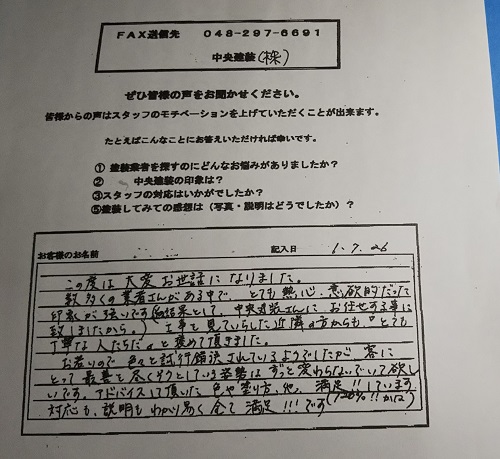 FAX送信先 048-297-6691
中央建装(株)
ぜひ皆様の声をお聞かせください。
皆様からの声はスタッフのモチベーションを上げていただくことが出来ます。
たとえばこんなことにお答えいただければ幸いです。
① 塗装業者を探すのにどんなお悩みがありましたか?
② 中央建装の印象は?
③スタッフの対応はいかがでしたか?
⑤塗装してみての感想は(写真・説明はどうでしたか)?
お客様のお名前 記入日 1.7.26
この度は大変お世話になりました。
数多くの業者さんがある中で、とても熱心、意欲的だった
印象が強いです(結果として、中央建装さんにお任せする事に
致しましたから。) 工事を見ていらした近隣の方からも"とても
丁寧な人たちだ"と褒めて頂きました。
お若いので色々と試行錯誤されているようでしたが、客に
とって最善を尽くそうとしている姿勢はずっと変わらないでいて欲し
いです。アドバイスして頂いた色や塗り方、他、満足!!しています
対応も、説明もわかり易く全て満足!!!です